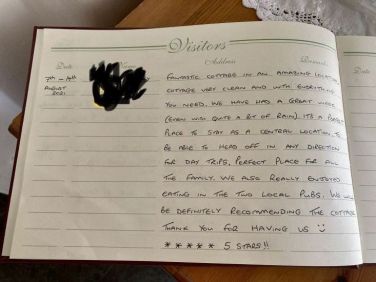 Visitors
Date Name Address Remarks
7th - 14th
AUGUST
2021
FANTASTIC COTTAGE IN AN AMAZING LOCATION
COTTAGE VERY CLEAN AND WITH EVERYTHING
YOU NEED. WE HAVE HAD A GREAT WEEK
(EVEN WITH QUITE A BIT OF RAIN). IT'S A PERFECT
PLACE TO STAY AS A CENTRAL LOCATION TO
BE ABLE TO HEAD OFF IN ANY DIRECTION
FOR DAY TRIPS. PERFECT PLACE FOR ALL
THE FAMILY. WE ALSO REALLY ENJOYED
EATING IN THE TWO LOCAL PUBS. WE WILL
BE DEFINITELY RECOMMENDING THE COTTAGE
THANK YOU FOR HAVING US
***** 5 STARS!!
Date